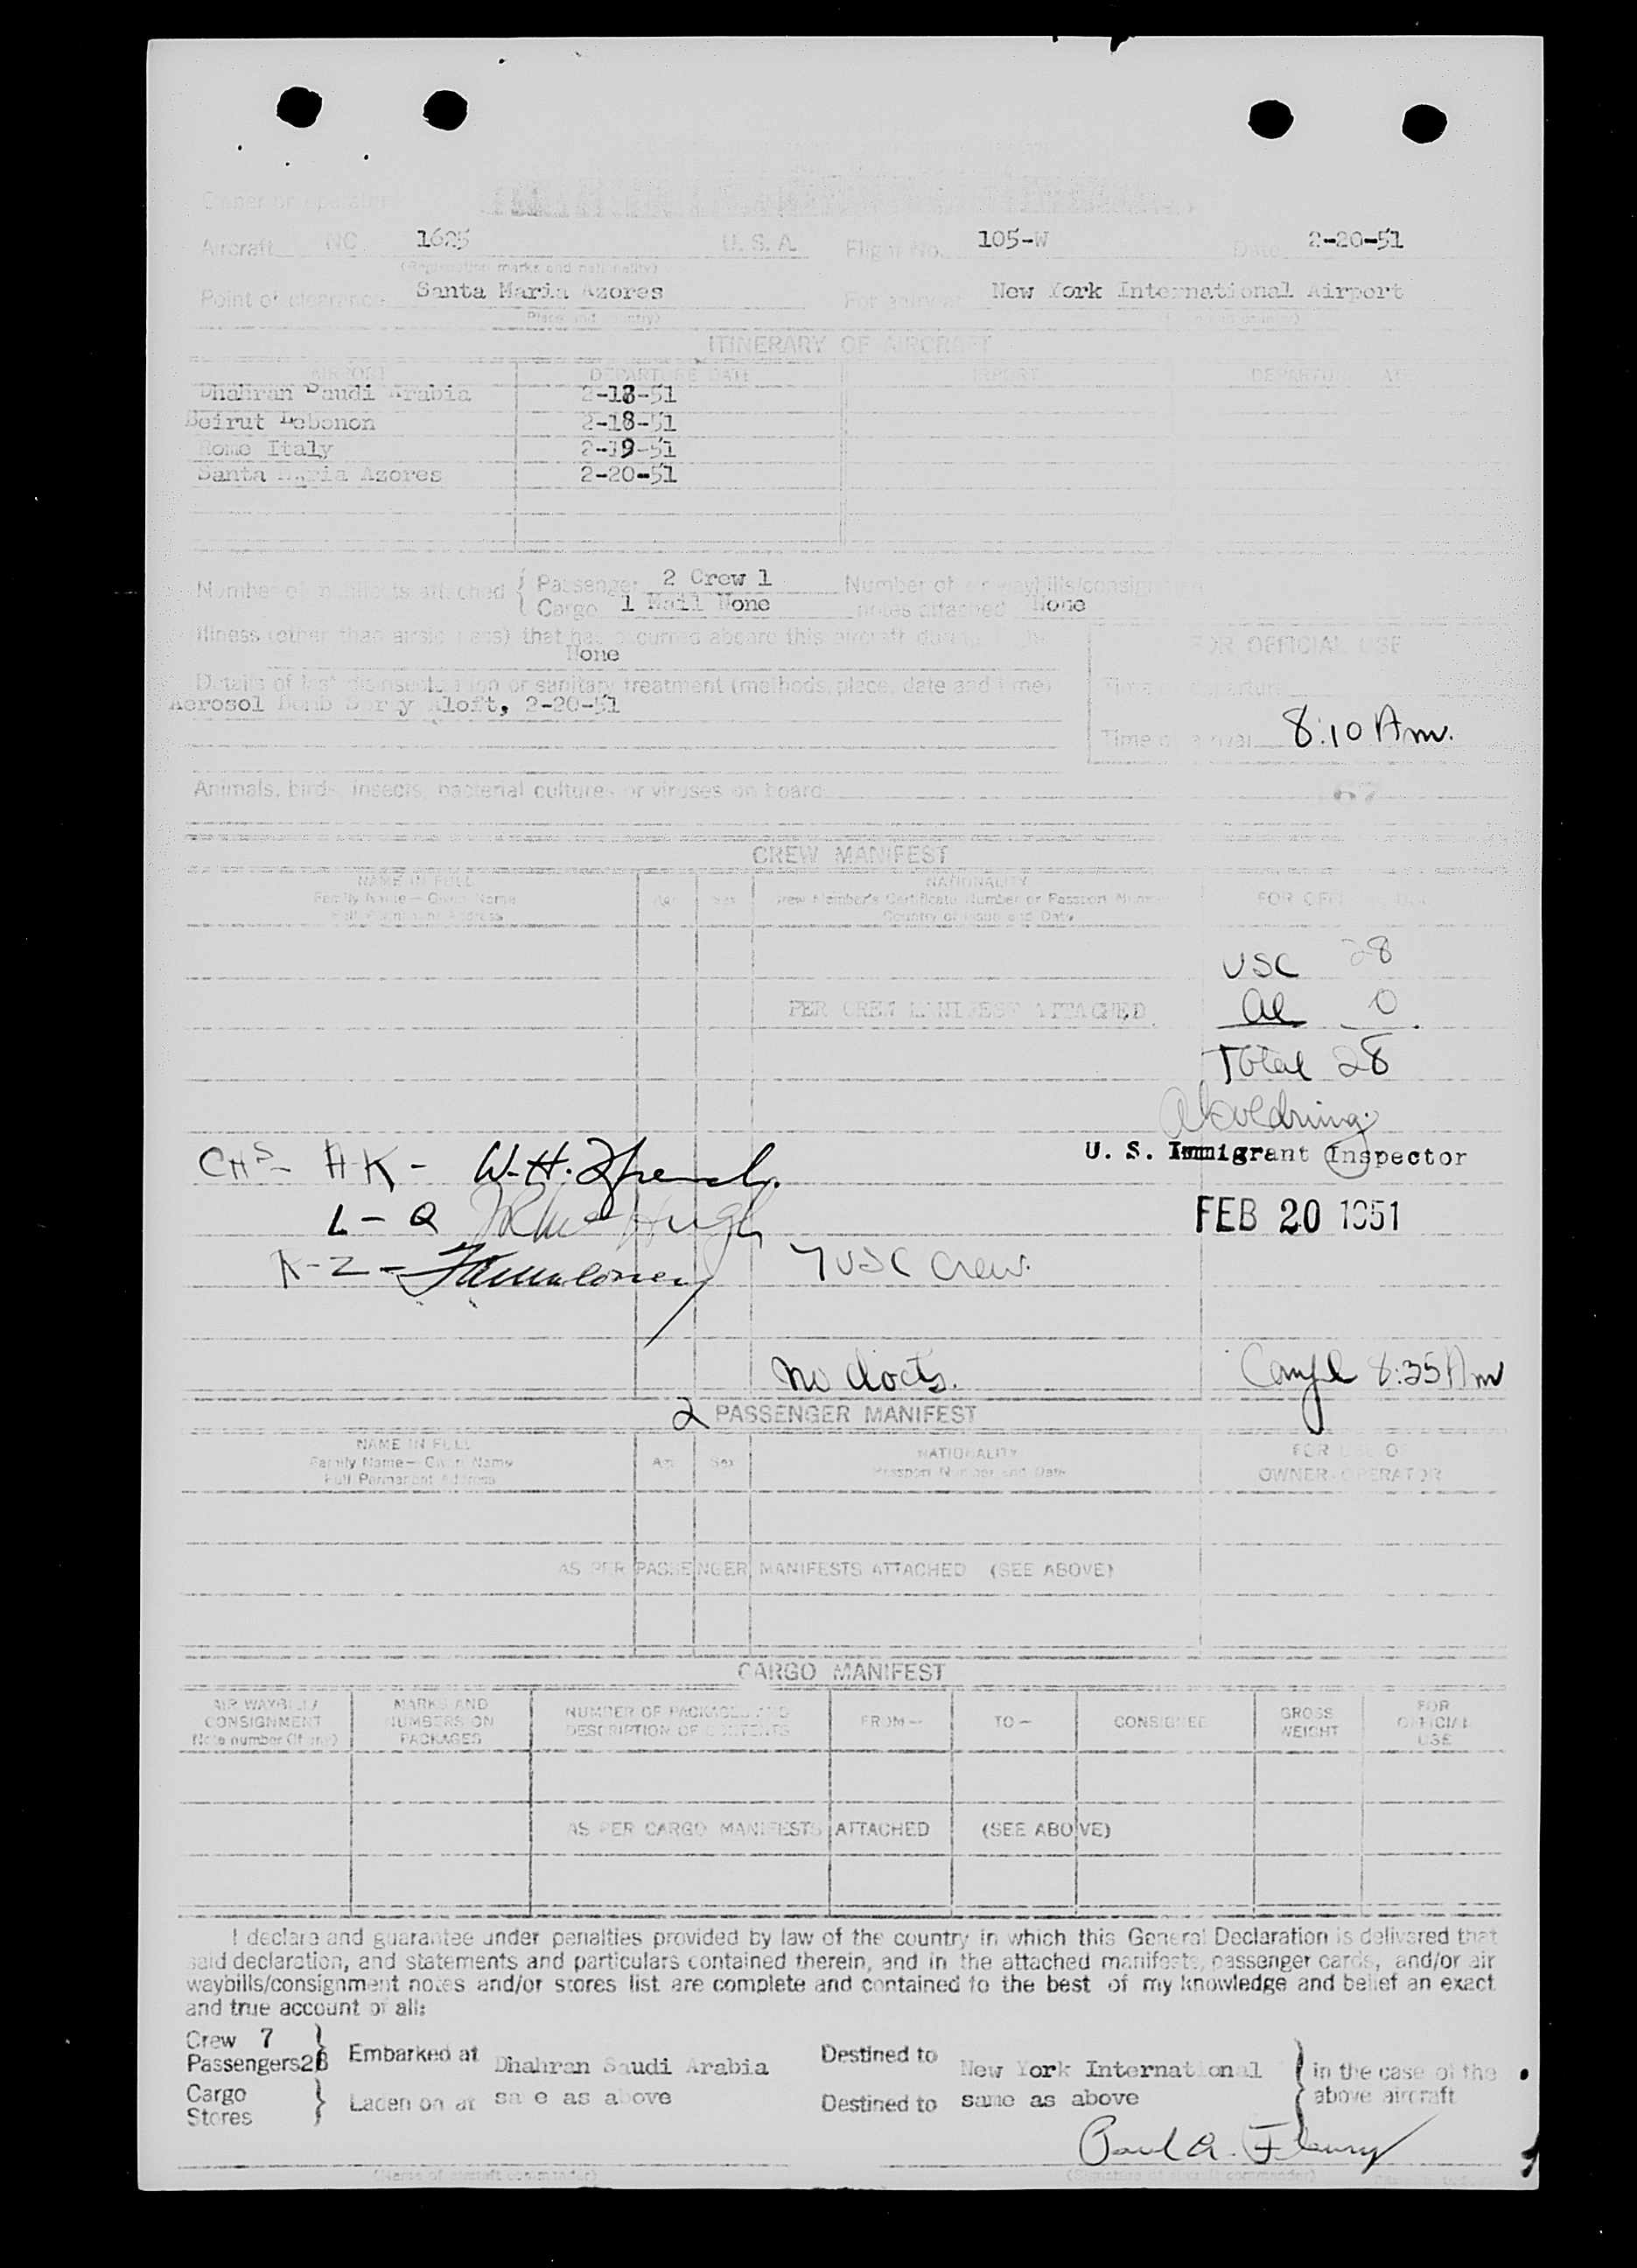 Owner or operator
Aircraft NC 1625 U. S. A. Flight No. 105-W Date 2-20-51
(Registration marks and nationality)
Point of clearance Santa Maria Azores For entry at New York International Airport
(Place and country)
ITINERARY OF AIRCRAFT
AIRPORT DEPARTURE DATE AIRPORT DEPARTURE DATE
Dhahran Saudi Arabia 2-18-51
Beirut Lebonon 2-18-51
Rome Italy 2-19-51
Santa Maria Azores 2-20-51
Number of manifests attached { Passenger 2 Crew 1 Number of air waybills/consignment
Cargo 1 Mail None notes attached None
Illness (other than airsickness) that has occurred aboard this aircraft during the
None
FOR OFFICIAL USE
Details of last disinsectization or sanitary treatment (methods, place, date and time)
Time of departure
Aerosol Bomb Spray Aloft, 2-20-51
Time of arrival 8:10 Am.
Animals, birds, insects, bacterial cultures or viruses on board 67
CREW MANIFEST
NAME IN FULL NATIONALITY
Family Name — Given Name Age Sex Crew Member's Certificate Number or Passport Number FOR OFFICIAL USE
Full Permanent Address Country of Issue and Date
USC 28
PER CREW MANIFEST ATTACHED al 0
Total 28
U. S. Immigrant Inspector
CHS - A-K - W.H.
L - Q McHugh FEB 20 1951
R-Z - 7 USC Crew.
No docts. Compl 8:35 Am
2 PASSENGER MANIFEST
NAME IN FULL NATIONALITY FOR USE OF
Family Name — Given Name Age Sex Passport Number and Date OWNER-OPERATOR
Full Permanent Address
AS PER PASSENGER MANIFESTS ATTACHED (SEE ABOVE)
CARGO MANIFEST
AIR WAYBILL/ MARKS AND NUMBER OF PACKAGES AND FROM — TO — CONSIGNEE GROSS FOR
CONSIGNMENT NUMBERS ON DESCRIPTION OF CONTENTS WEIGHT OFFICIAL
Note number (if any) PACKAGES USE
AS PER CARGO MANIFESTS ATTACHED (SEE ABOVE)
I declare and guarantee under penalties provided by law of the country in which this General Declaration is delivered that
said declaration, and statements and particulars contained therein, and in the attached manifests, passenger cards, and/or air
waybills/consignment notes and/or stores list are complete and contained to the best of my knowledge and belief an exact
and true account of all:
Crew 7
Passengers 28 } Embarked at Dhahran Saudi Arabia Destined to New York International } in the case of the
Cargo
Stores } Laden on at same as above Destined to same as above above aircraft
Paul A. Fleury
(Name of aircraft commander) (Signature of aircraft commander)